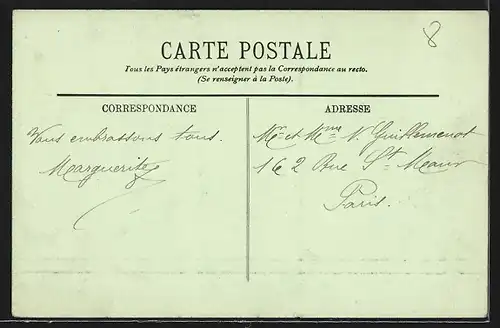 8
CARTE POSTALE
Tous les Pays étrangers n'acceptent pas la Correspondance au recto.
(Se renseigner à la Poste).
CORRESPONDANCE
ADRESSE
Vous embrassons tous.
Marguerite
Mr et Mme V. Guillemenot
162 Rue St Maur
Paris.